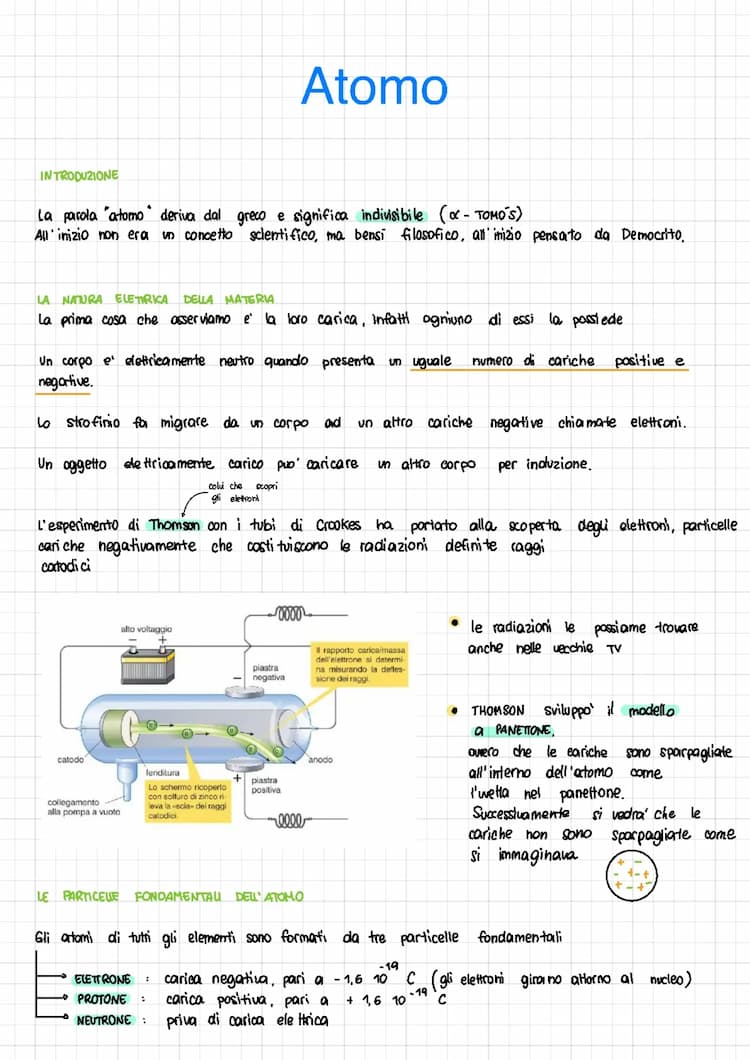 Atomo
INTRODUZIONE
La parola "atomo" deriva dal greco e significa indivisibile (α - TOMO'S)
All'inizio non era un concetto scientifico, ma bensì filosofico, all'inizio pensato da Democrito.
LA NATURA ELETTRICA DELLA MATERIA
La prima cosa che osserviamo e' la loro carica, infatti ogniuno di essi la possiede
Un corpo e' elettricamente neutro quando presenta un uguale numero di cariche positive e
negative.
Lo strofinio fa migrare da un corpo ad un altro cariche negative chiamate elettroni.
Un oggetto elettricamente carico puo' caricare un altro corpo per induzione.
colui che scoprì
gli elettroni
L'esperimento di Thomson con i tubi di Crookes ha portato alla scoperta degli elettroni, particelle
cariche negativamente che costituiscono le radiazioni definite raggi
catodici
alto voltaggio
− +
piastra
negativa
−
Il rapporto carica/massa
dell'elettrone si determi-
na misurando la defles-
sione dei raggi.
e e e e
catodo
anodo
fenditura
+
piastra
positiva
Lo schermo ricoperto
con solfuro di zinco ri-
leva la «scia» dei raggi
catodici.
collegamento
alla pompa a vuoto
• le radiazioni le possiamo trovare
anche nelle vecchie TV
• THOMSON sviluppo' il modello
a PANETTONE,
ovvero che le cariche sono sparpagliate
all'interno dell'atomo come
l'uvetta nel panettone.
Successivamente si vedra' che le
cariche non sono sparpagliate come
si immaginava
+ −
− + +
+ − +
LE PARTICELLE FONDAMENTALI DELL'ATOMO
Gli atomi di tutti gli elementi sono formati da tre particelle fondamentali
ELETTRONE : carica negativa, pari a - 1,6 10⁻¹⁹ C (gli elettroni girano attorno al nucleo)
PROTONE : carica positiva, pari a + 1,6 10⁻¹⁹ C
NEUTRONE : priva di carica elettrica